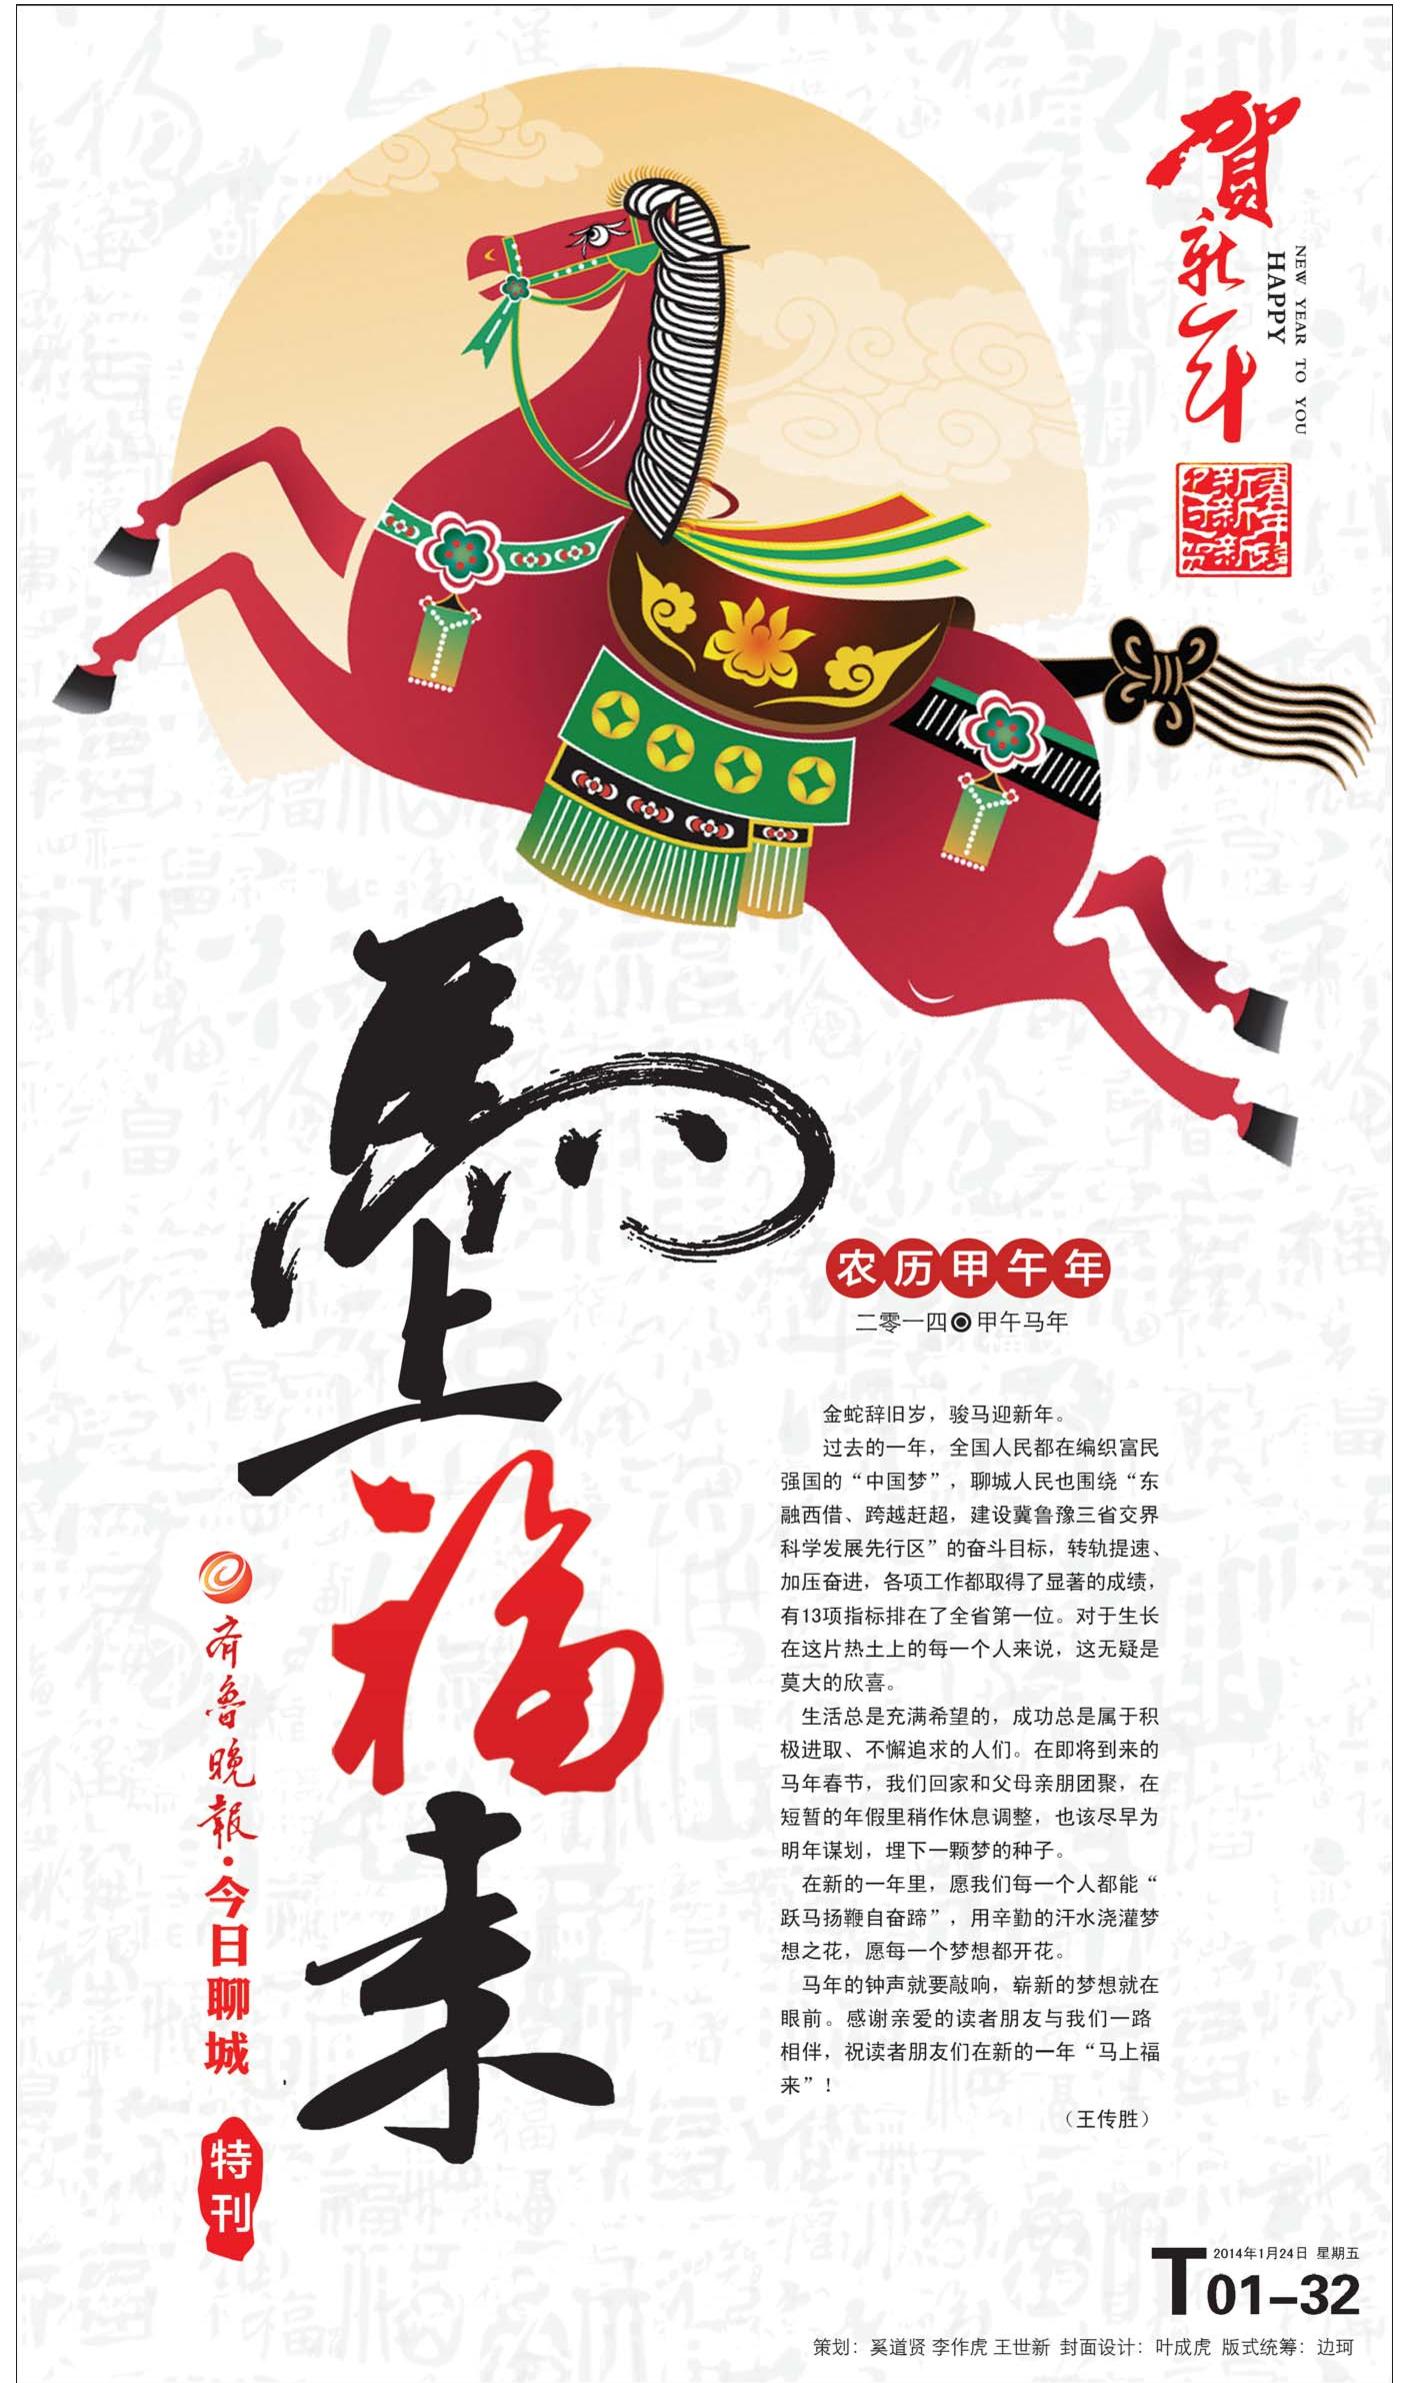 賀新年
HAPPY
NEW YEAR TO YOU
馬上福来
农历甲午年
二零一四 甲午马年
金蛇辞旧岁，骏马迎新年。
过去的一年，全国人民都在编织富民
强国的“中国梦”，聊城人民也围绕“东
融西借、跨越赶超，建设冀鲁豫三省交界
科学发展先行区”的奋斗目标，转轨提速、
加压奋进，各项工作都取得了显著的成绩，
有13项指标排在了全省第一位。对于生长
在这片热土上的每一个人来说，这无疑是
莫大的欣喜。
生活总是充满希望的，成功总是属于积
极进取、不懈追求的人们。在即将到来的
马年春节，我们回家和父母亲朋团聚，在
短暂的年假里稍作休息调整，也该尽早为
明年谋划，埋下一颗梦的种子。
在新的一年里，愿我们每一个人都能“
跃马扬鞭自奋蹄”，用辛勤的汗水浇灌梦
想之花，愿每一个梦想都开花。
马年的钟声就要敲响，崭新的梦想就在
眼前。感谢亲爱的读者朋友与我们一路
相伴，祝读者朋友们在新的一年“马上福
来”！
（王传胜）
齐鲁晚報·今日聊城
特刊
2014年1月24日 星期五
T01-32
策划：奚道贤 李作虎 王世新 封面设计：叶成虎 版式统筹：边珂